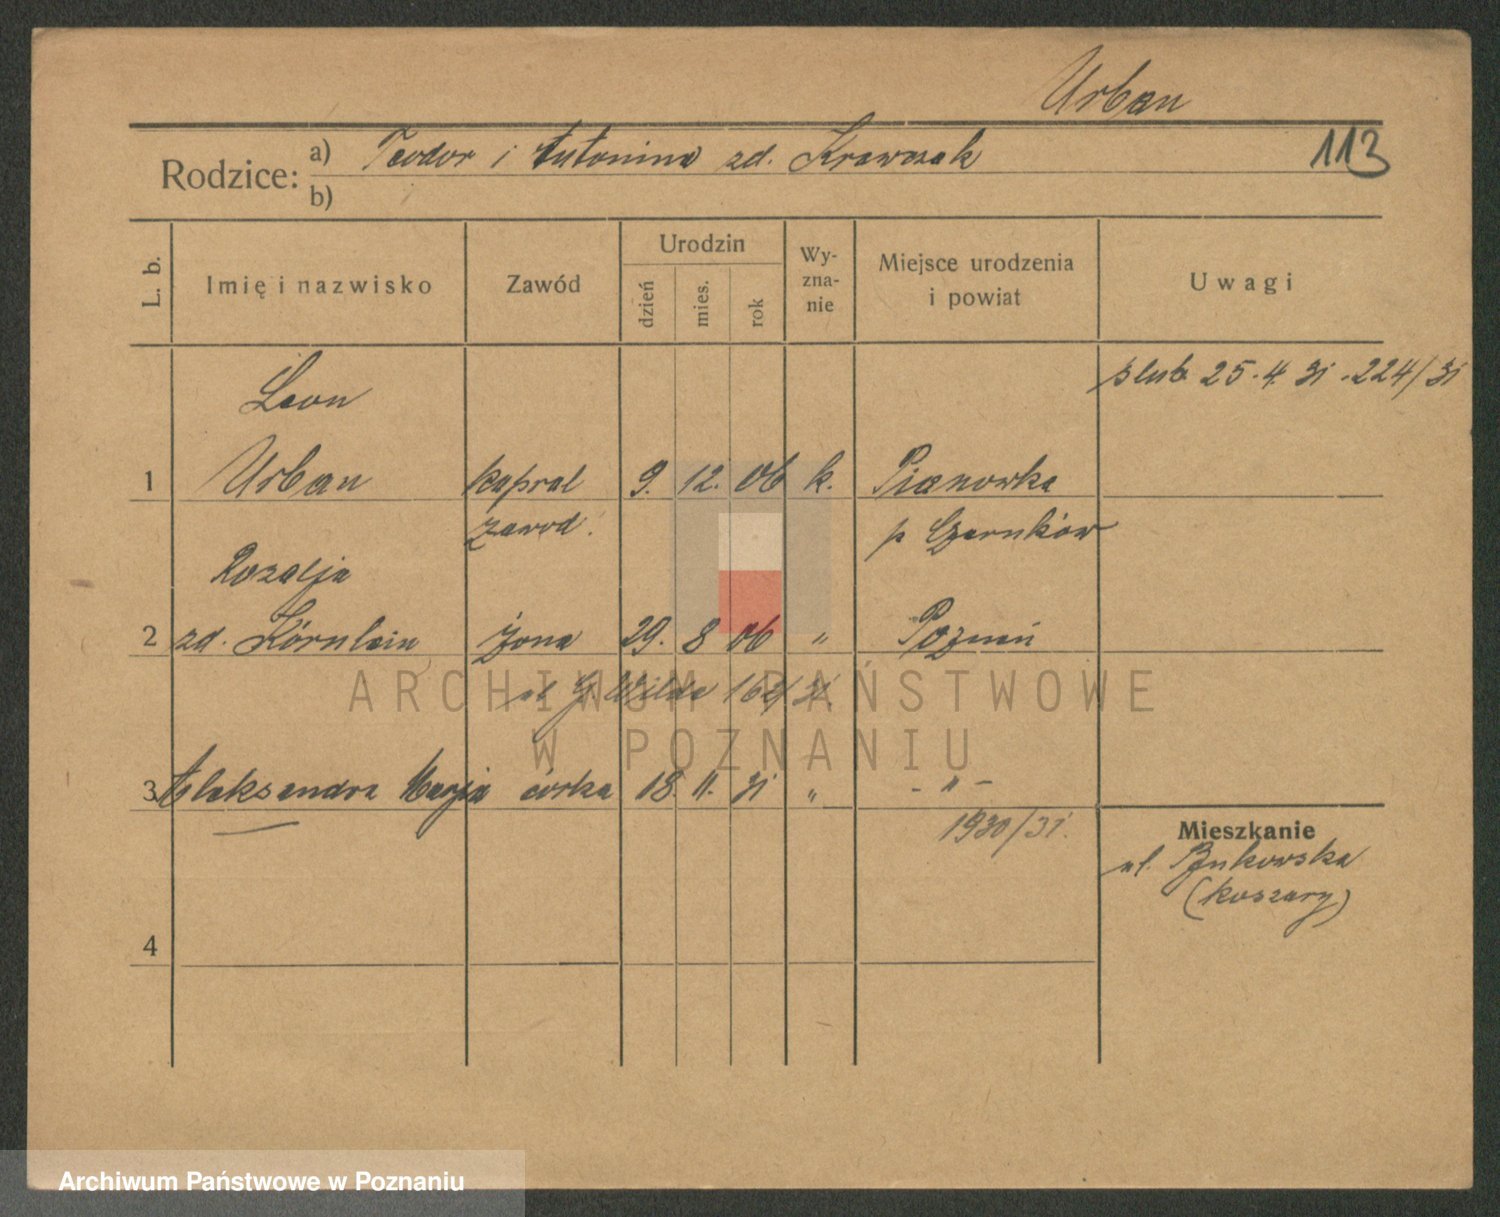 Urban
113
Rodzice: a) Teodor i Antonina zd. Krawczak
b)
L. b.
Imię i nazwisko
Zawód
Urodzin
dzień
mies.
rok
Wy-
zna-
nie
Miejsce urodzenia
i powiat
Uwagi
ślub 25.4.31.224/31
Leon
1 Urban kapral 9. 12. 06 k. Pianowka
zawod. p Czarnków
Rozalja
2 zd. Körnlein żona 29. 8 06 " Poznań
ul G. Wilda 162/31.
3 Aleksandra Marja córka 18. 11. 31 " - " -
1930/31.
Mieszkanie
ul. Bukowska
(koszary)
4
ARCHIWUM PAŃSTWOWE
W POZNANIU
Archiwum Państwowe w Poznaniu